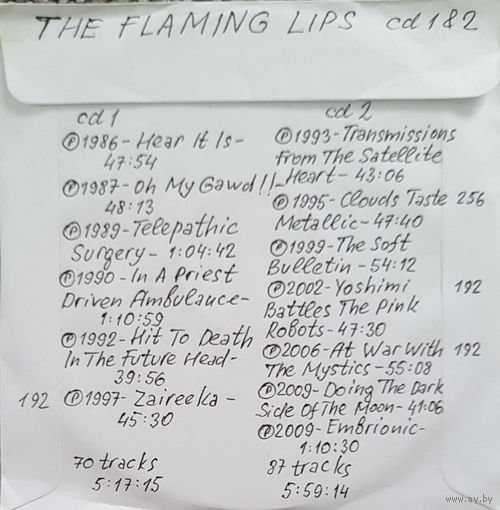 THE FLAMING LIPS cd 1 & 2
cd 1
Ⓟ1986-Hear It Is-
47:54
Ⓟ1987-Oh My Gawd!!-
48:13
Ⓟ1989-Telepathic
Surgery-1:04:42
Ⓟ1990-In A Priest
Driven Ambulance-
1:10:59
Ⓟ1992-Hit To Death
In The Future Head-
39:56
192 Ⓟ1997-Zaireeka-
45:30
70 tracks
5:17:15
cd 2
Ⓟ1993-Transmissions
from The Satellite
Heart-43:06
Ⓟ1995-Clouds Taste 256
Metallic-47:40
Ⓟ1999-The Soft
Bulletin-54:12
Ⓟ2002-Yoshimi 192
Battles The Pink
Robots-47:30
Ⓟ2006-At War With 192
The Mystics-55:08
Ⓟ2009-Doing The Dark
Side Of The Moon-41:06
Ⓟ2009-Embrionic-
1:10:30
87 tracks
5:59:14
www.ay.by